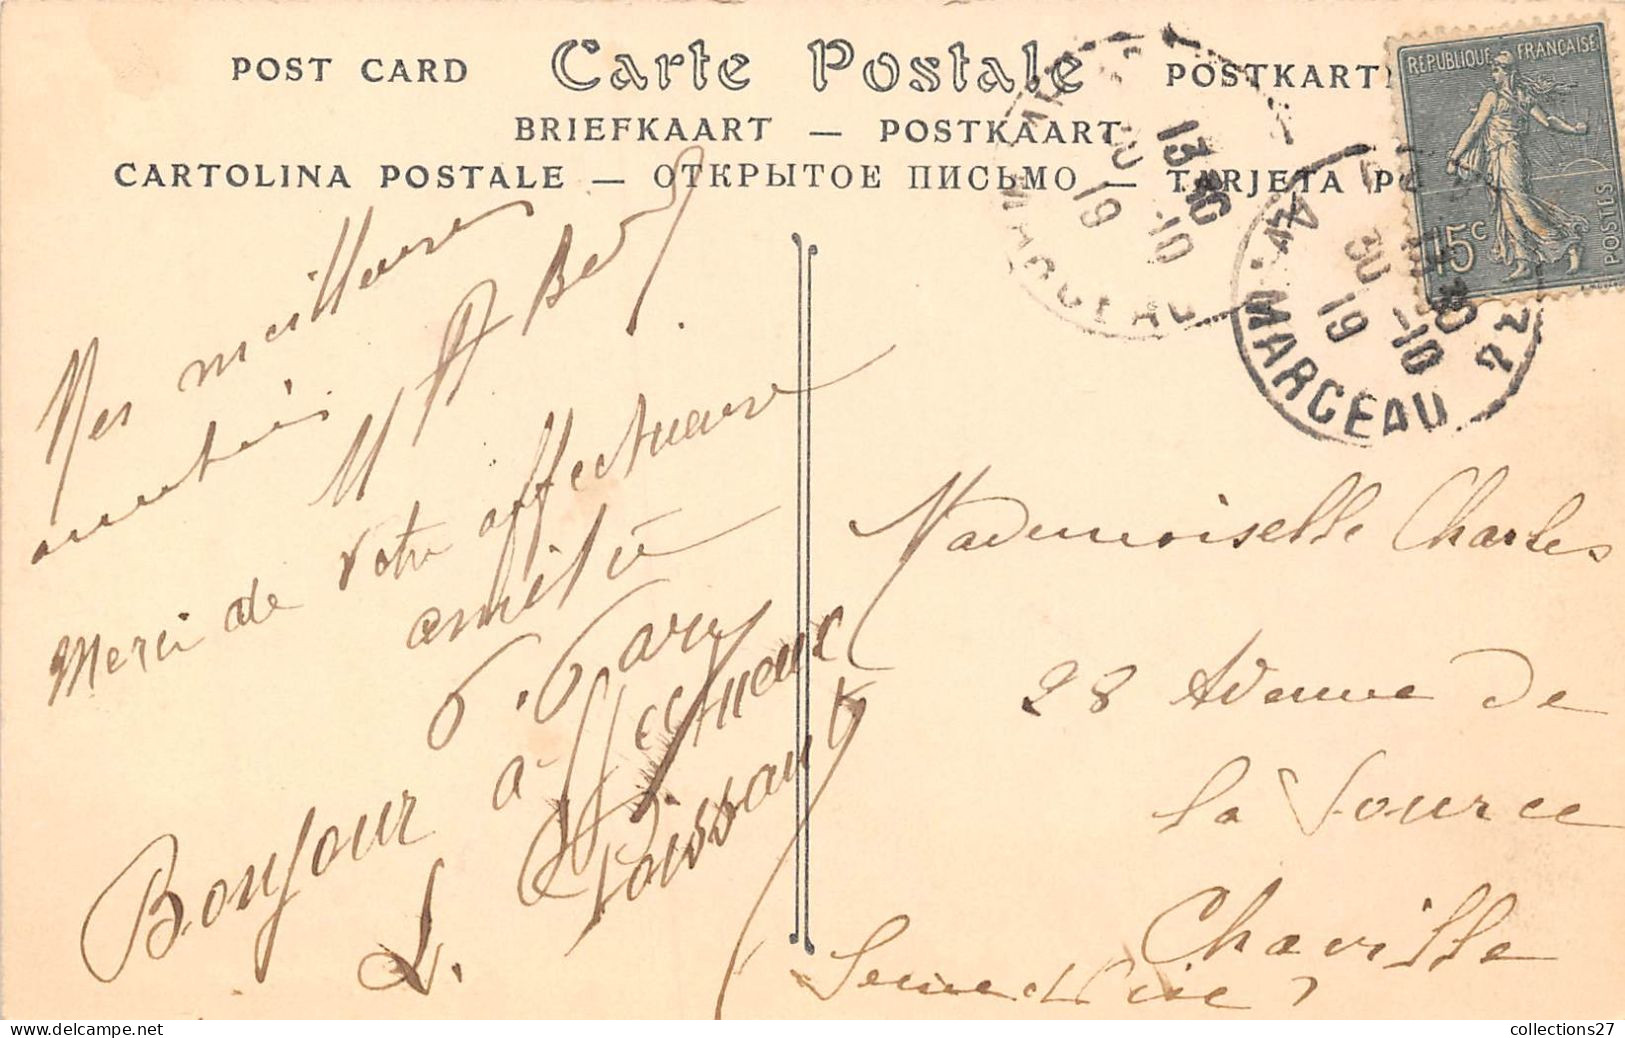 POST CARD Carte Postale POSTKARTE
BRIEFKAART — POSTKAART
CARTOLINA POSTALE — ОТКРЫТОЕ ПИСЬМО — TARJETA P
REPUBLIQUE FRANÇAISE
15c
POSTES
13
30 -10
19
MARCEAU
30 -10
19
MARCEAU
Mes meilleures
amitiés
Merci de votre affectueuse
amitié
Bonjour à
L.
Mademoiselle Charles
28 Avenue de
la Source
Chaville
Seine et Oise
collections27